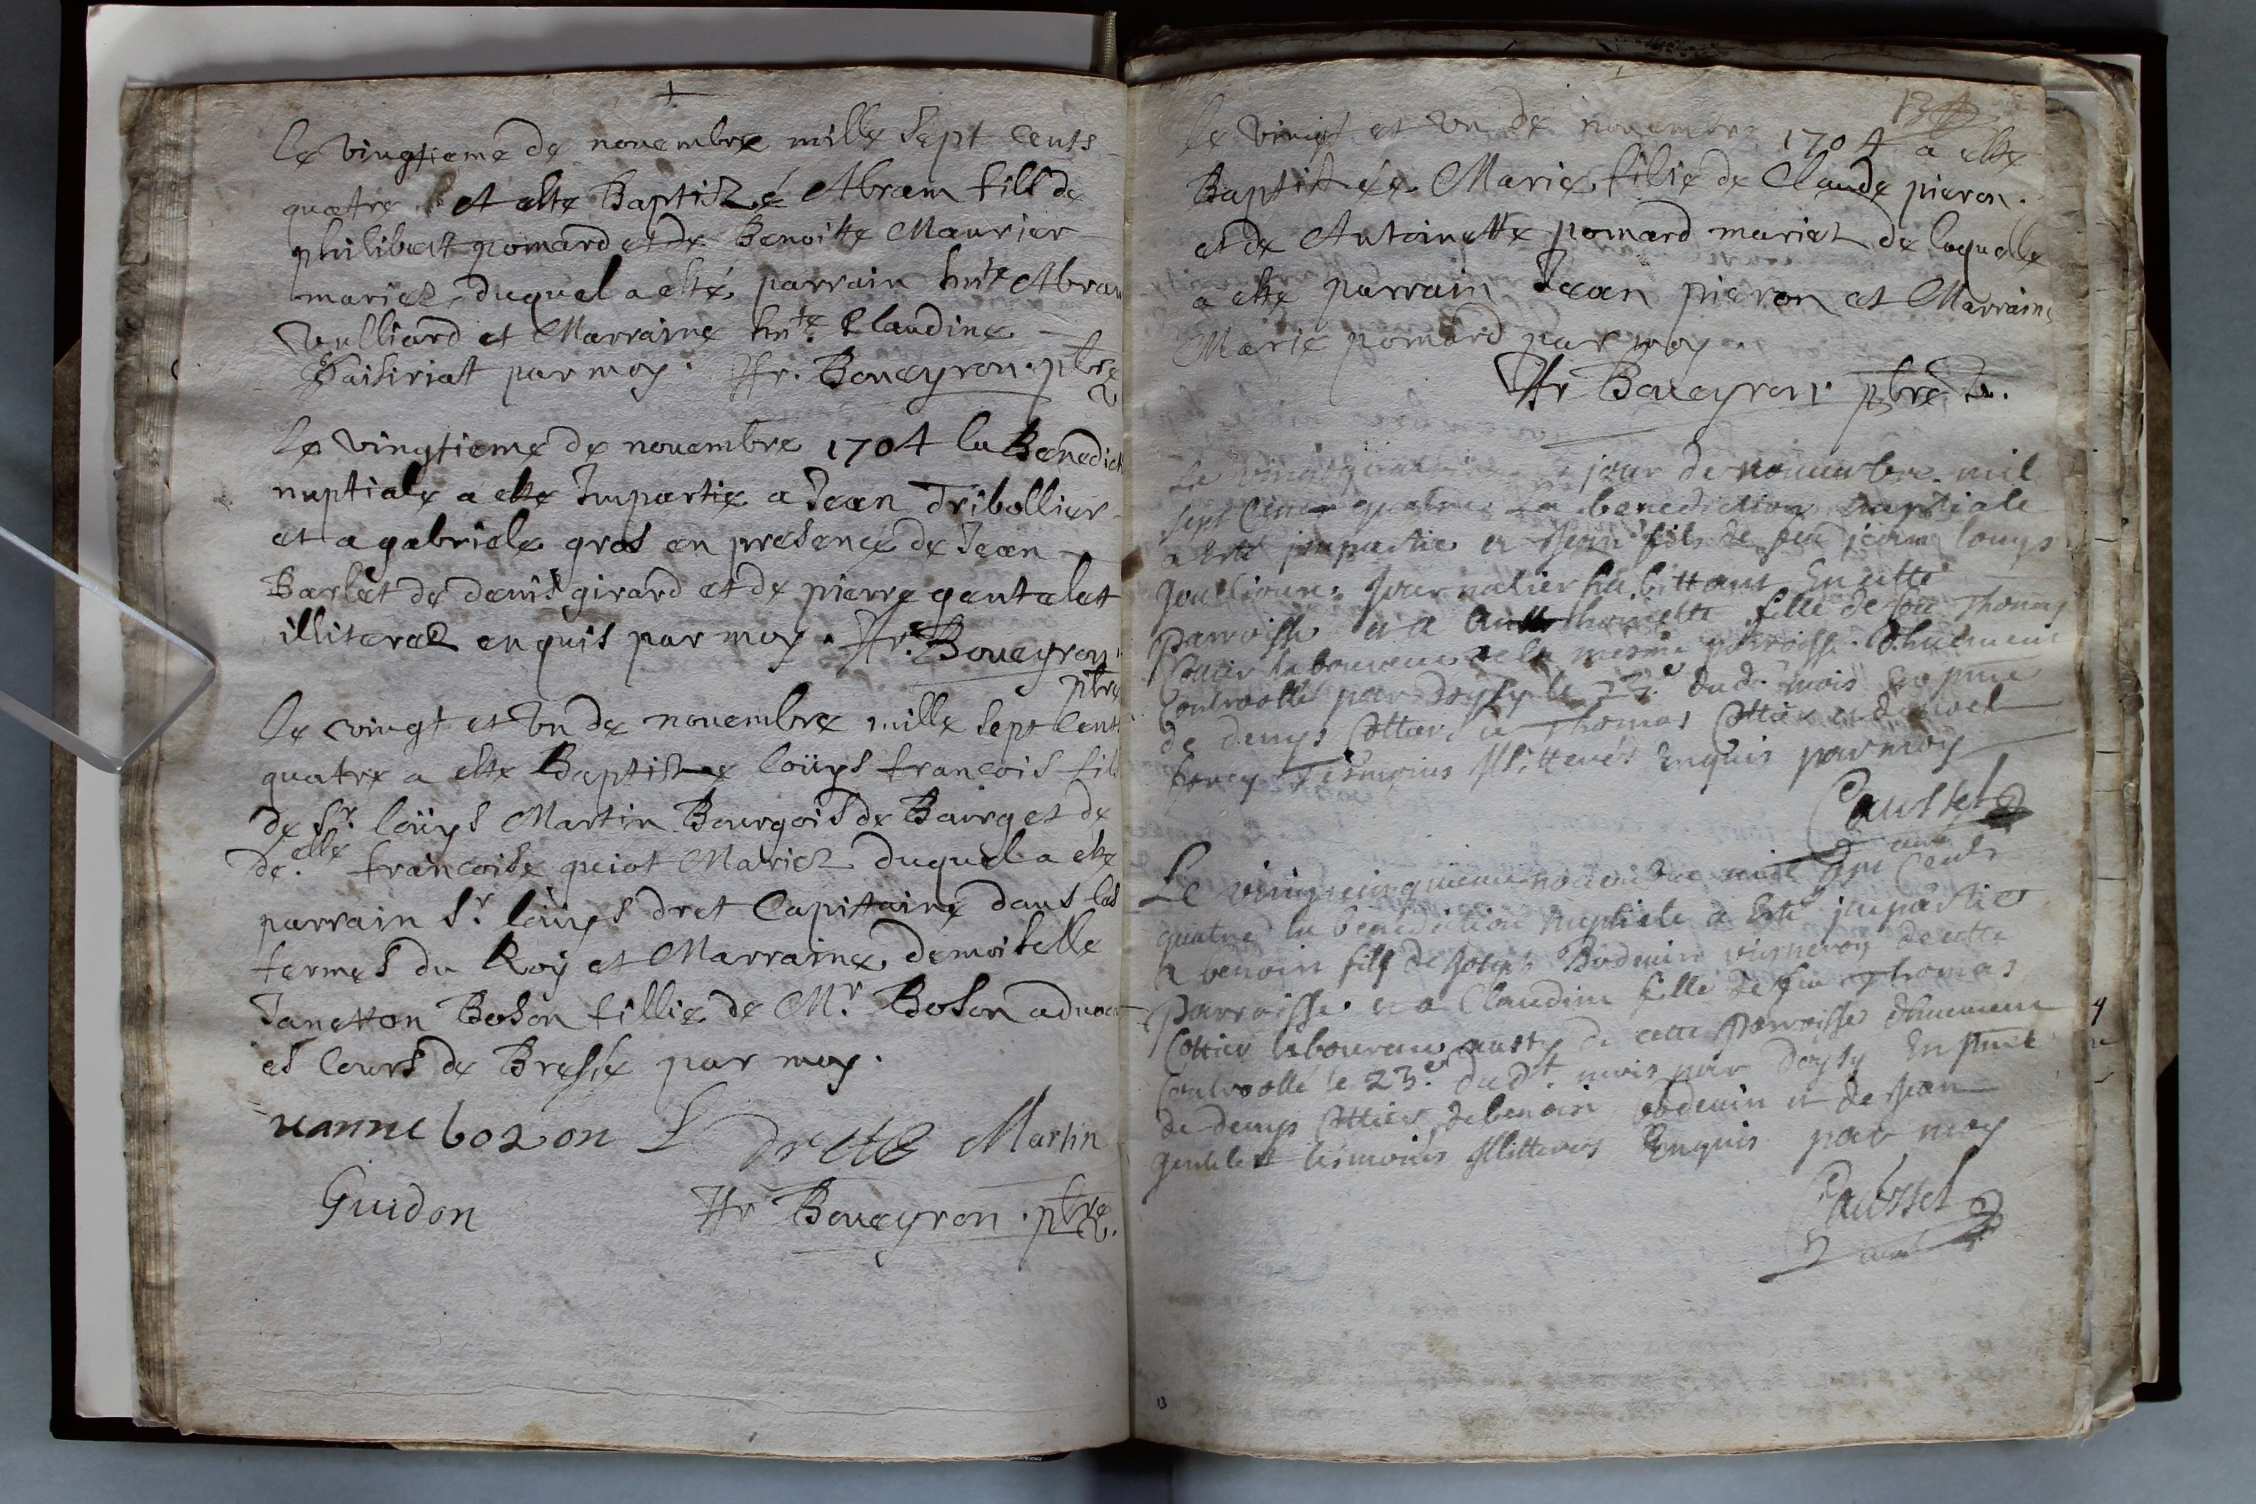 Le vingtieme de novembre mille sept cents
quatre a este Baptizé Abram fils de
philibert pomard et de Benoitte Maurier
mariez, duquel a esté parrain hnte Abram
Vulliard et Marraine hnte Claudine
par moy. Fr. Boueyron. pbre
Le vingtieme de novembre 1704 la Benedict
nuptiale a este Impartie a Jean Tribollier
et a gabriele gros en presence de Jean
Barlet de denis girard et de pierre gentelet
illiterez enquis par moy. Fr. Boueyron
pbre
Le vingt et un de novembre mille sept cent
quatre a este Baptise loüys francois fil
de Sr. loüys Martin Bourgois de Bourg et de
de.elle francoise guiot Mariez duquel a este
parrain Sr loüys dret Capitaine dans les
fermes du Roy et Marraine demoiselle
Janeton Boson fillie de Mr. Boson advoca
es Cours de Bresse par moy.
Jeanne bozon L Drete Martin
Guidon Fr Boueyron. pbre.
134
Le vingt et un de novembre 1704 a este
Baptisée Marie fillie de Claude pieron.
et de Antoinette pomard mariez de laquelle
a este parrain Jean pieron et Marraine
Marie pomard par moy
Fr Boueyron. pbre
Le jour de novembre mil
sept Cent quatre La benediction nuptiale
a esté impartie a Jean fils de feu jean louys
Journalier habittant En cette
parroisse et a thomette fille de feu Thomas
Cottier laboureur de la mesme parroisse. Dhuement
Controollé par le 23.e dud. mois En pnce
de denys Cottier, de Thomas Cottier et de
tesmoins Illitterés Enquis par moy
Caussel
curé
Le vingt cinquieme novembre mil sept Cents
quatre la benediction nuptiale a Esté impartie
A benoin fils de Joseph vigneron de cette
parroisse. et a Claudine fille de feu Thomas
Cottier laboureur aussy de cette parroisse dhuement
Controollé le 23.e dud.t mois par En pnce
de denys Cottier de benoin et de Jean
gentelet tesmoins Illitteres Enquis par moy
Caussel
curé
13